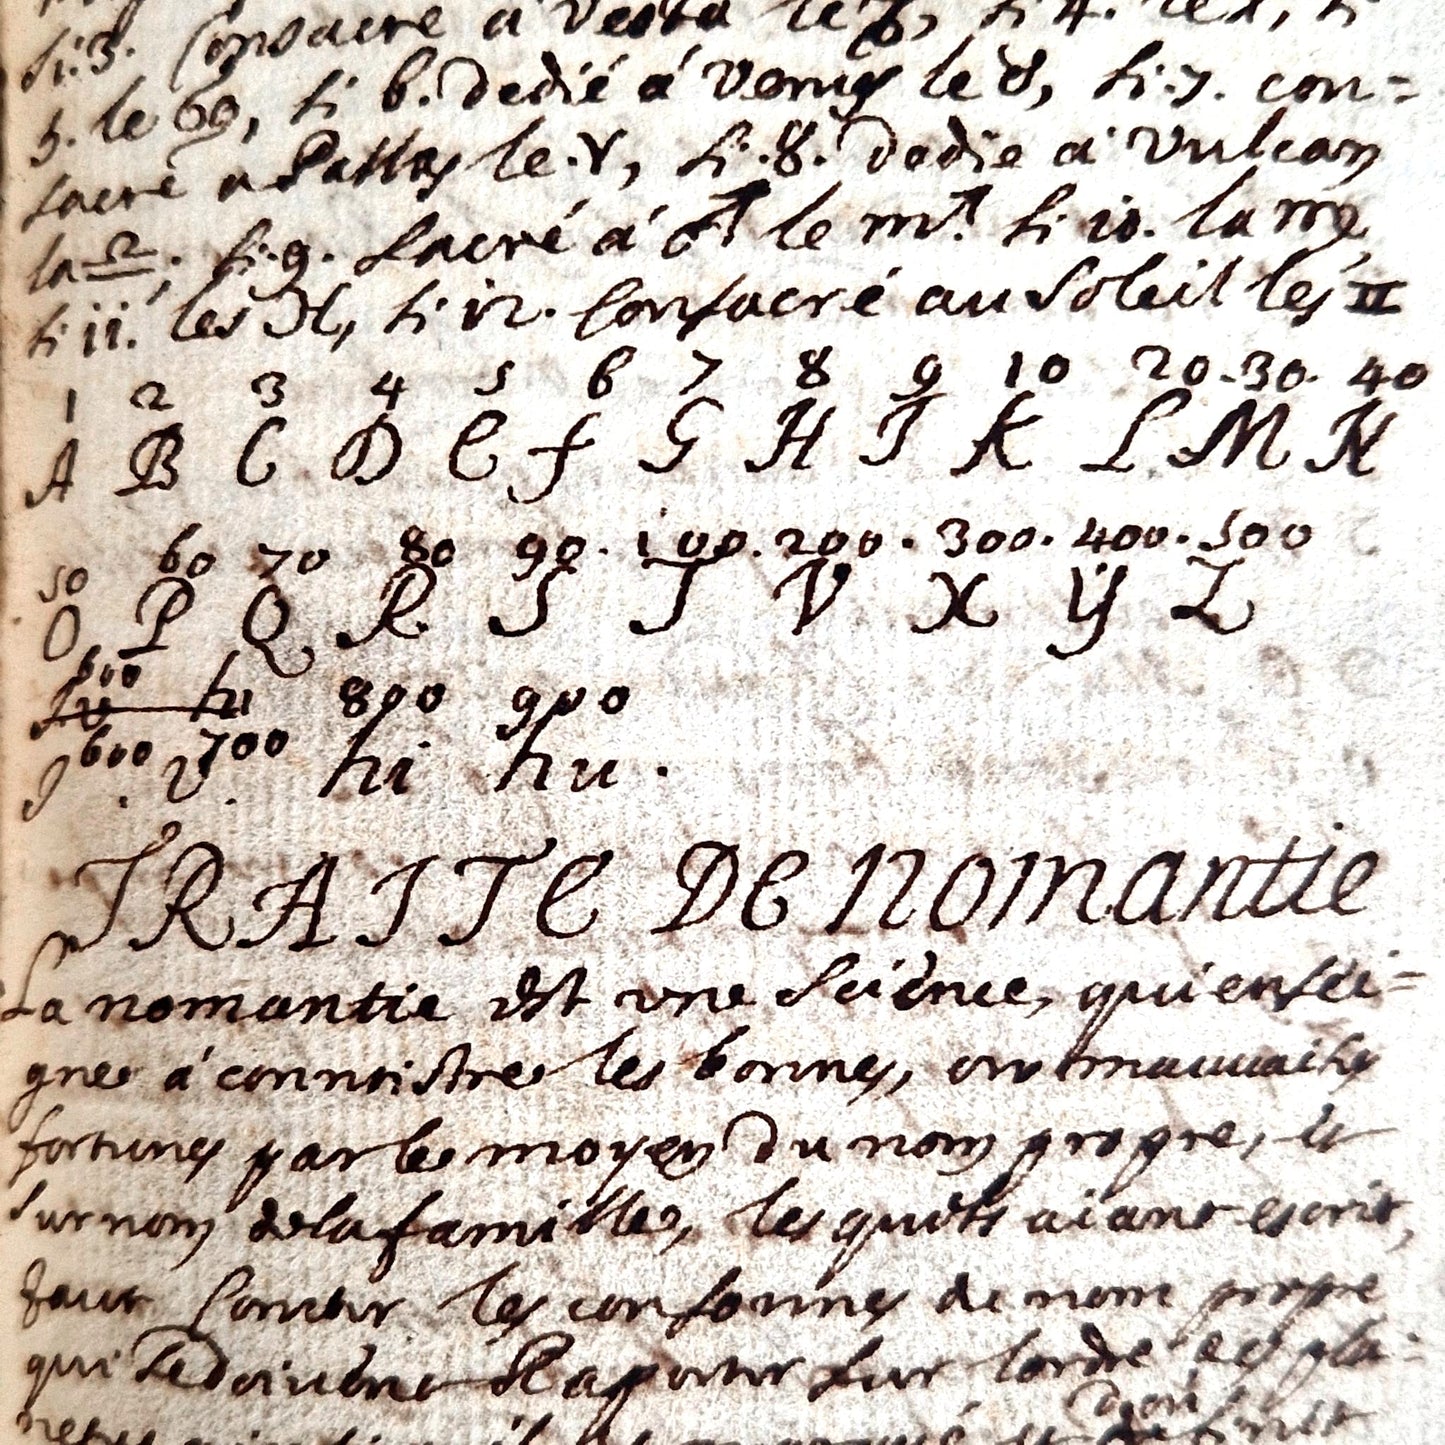 li.3. Consacré a Vesta le ♑, li 4. le
5. le ♋, li 6. dedié á Venus le ♉, li.7. con=
sacré a Pallas le ♈, li.8. dedie a Vulcan
la ♎; li.9. sacré á ♂ le ♏. li 10. la ♍
li 11. les ♓, li 12. Consacré au Soleil les ♊
1 2 3 4 5 6 7 8 9 10 20. 30. 40
A B C D E f G H I K L M N
50 60 70 80 90. 100. 200. 300. 400. 500
O P Q R S T V X Y Z
600 hu 800 900
600 700
J. v. hi hu.
TRAITE De Nomantie
La nomantie est vne Science, qui ensei=
gne á connoistre les bonnes, ou mauuaises
fortunes par le moyen du nom propre, et
surnom de la famille, lesquels aiant escrit,
faut Conter les consonnes de nom propre
qui se doiuent Raporter sur lordre des pla=